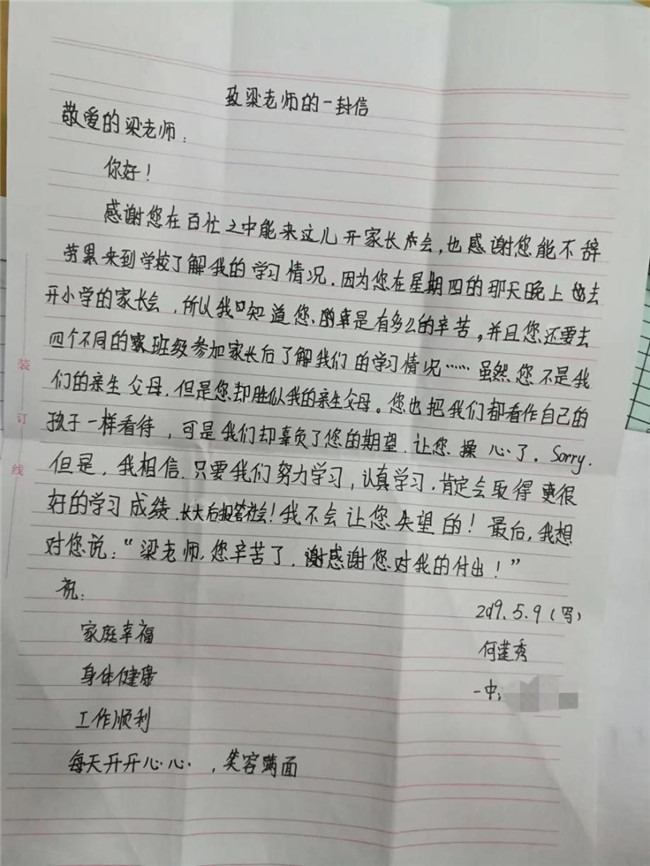 致梁老师的一封信
敬爱的梁老师：
你好！
感谢您在百忙之中能来这儿开家长会，也感谢您能不辞
劳累来到学校了解我的学习情况，因为您在星期四的那天晚上去
开小学的家长会，所以我知道您的真是有多么的辛苦，并且您还要去
四个不同的班级参加家长后了解我们的学习情况……虽然您不是我
们的亲生父母，但是您却胜似我的亲生父母。您也把我们都看作自己的
孩子一样看待，可是我们却辜负了您的期望，让您操心了。Sorry.
但是，我相信，只要我们努力学习，认真学习，肯定会取得更很
好的学习成绩，长大后报答社会！我不会让您失望的！最后，我想
对您说：“梁老师，您辛苦了，谢感谢您对我的付出！”
祝：
2019.5.9（写）
家庭幸福
何莲秀
身体健康
一中：
工作顺利
每天开开心心，笑容满面
装
订
线